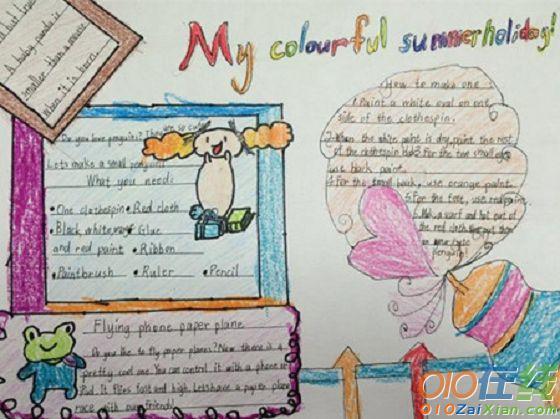 My colourful summerholiday!
A baby panda is
smaller than a mouse
when it is born.
Do you love penguins? They are so cute!
Lets make a small penguin!
What you need:
• One clothespin • Red cloth
• Black white • Glue
and red paint • Ribbon
• Paintbrush • Ruler • Pencil
How to make one:
1. Paint a white oval on one
side of the clothespin.
2. When the white paint is dry, paint the rest
of the clothespin 3. For the two small
use back paint.
4. For the small use orange paint.
5. For the use red paint
6. Make a scarf out of
the red cloth put them
penguin!
Flying phone paper plane
Do you like to fly paper planes? Now there is a
pretty cool one. You can control it with a phone or
Pad. It flies fast and high. Lets have a paper plane
race with our friends!
010在线
010ZaiXian.com